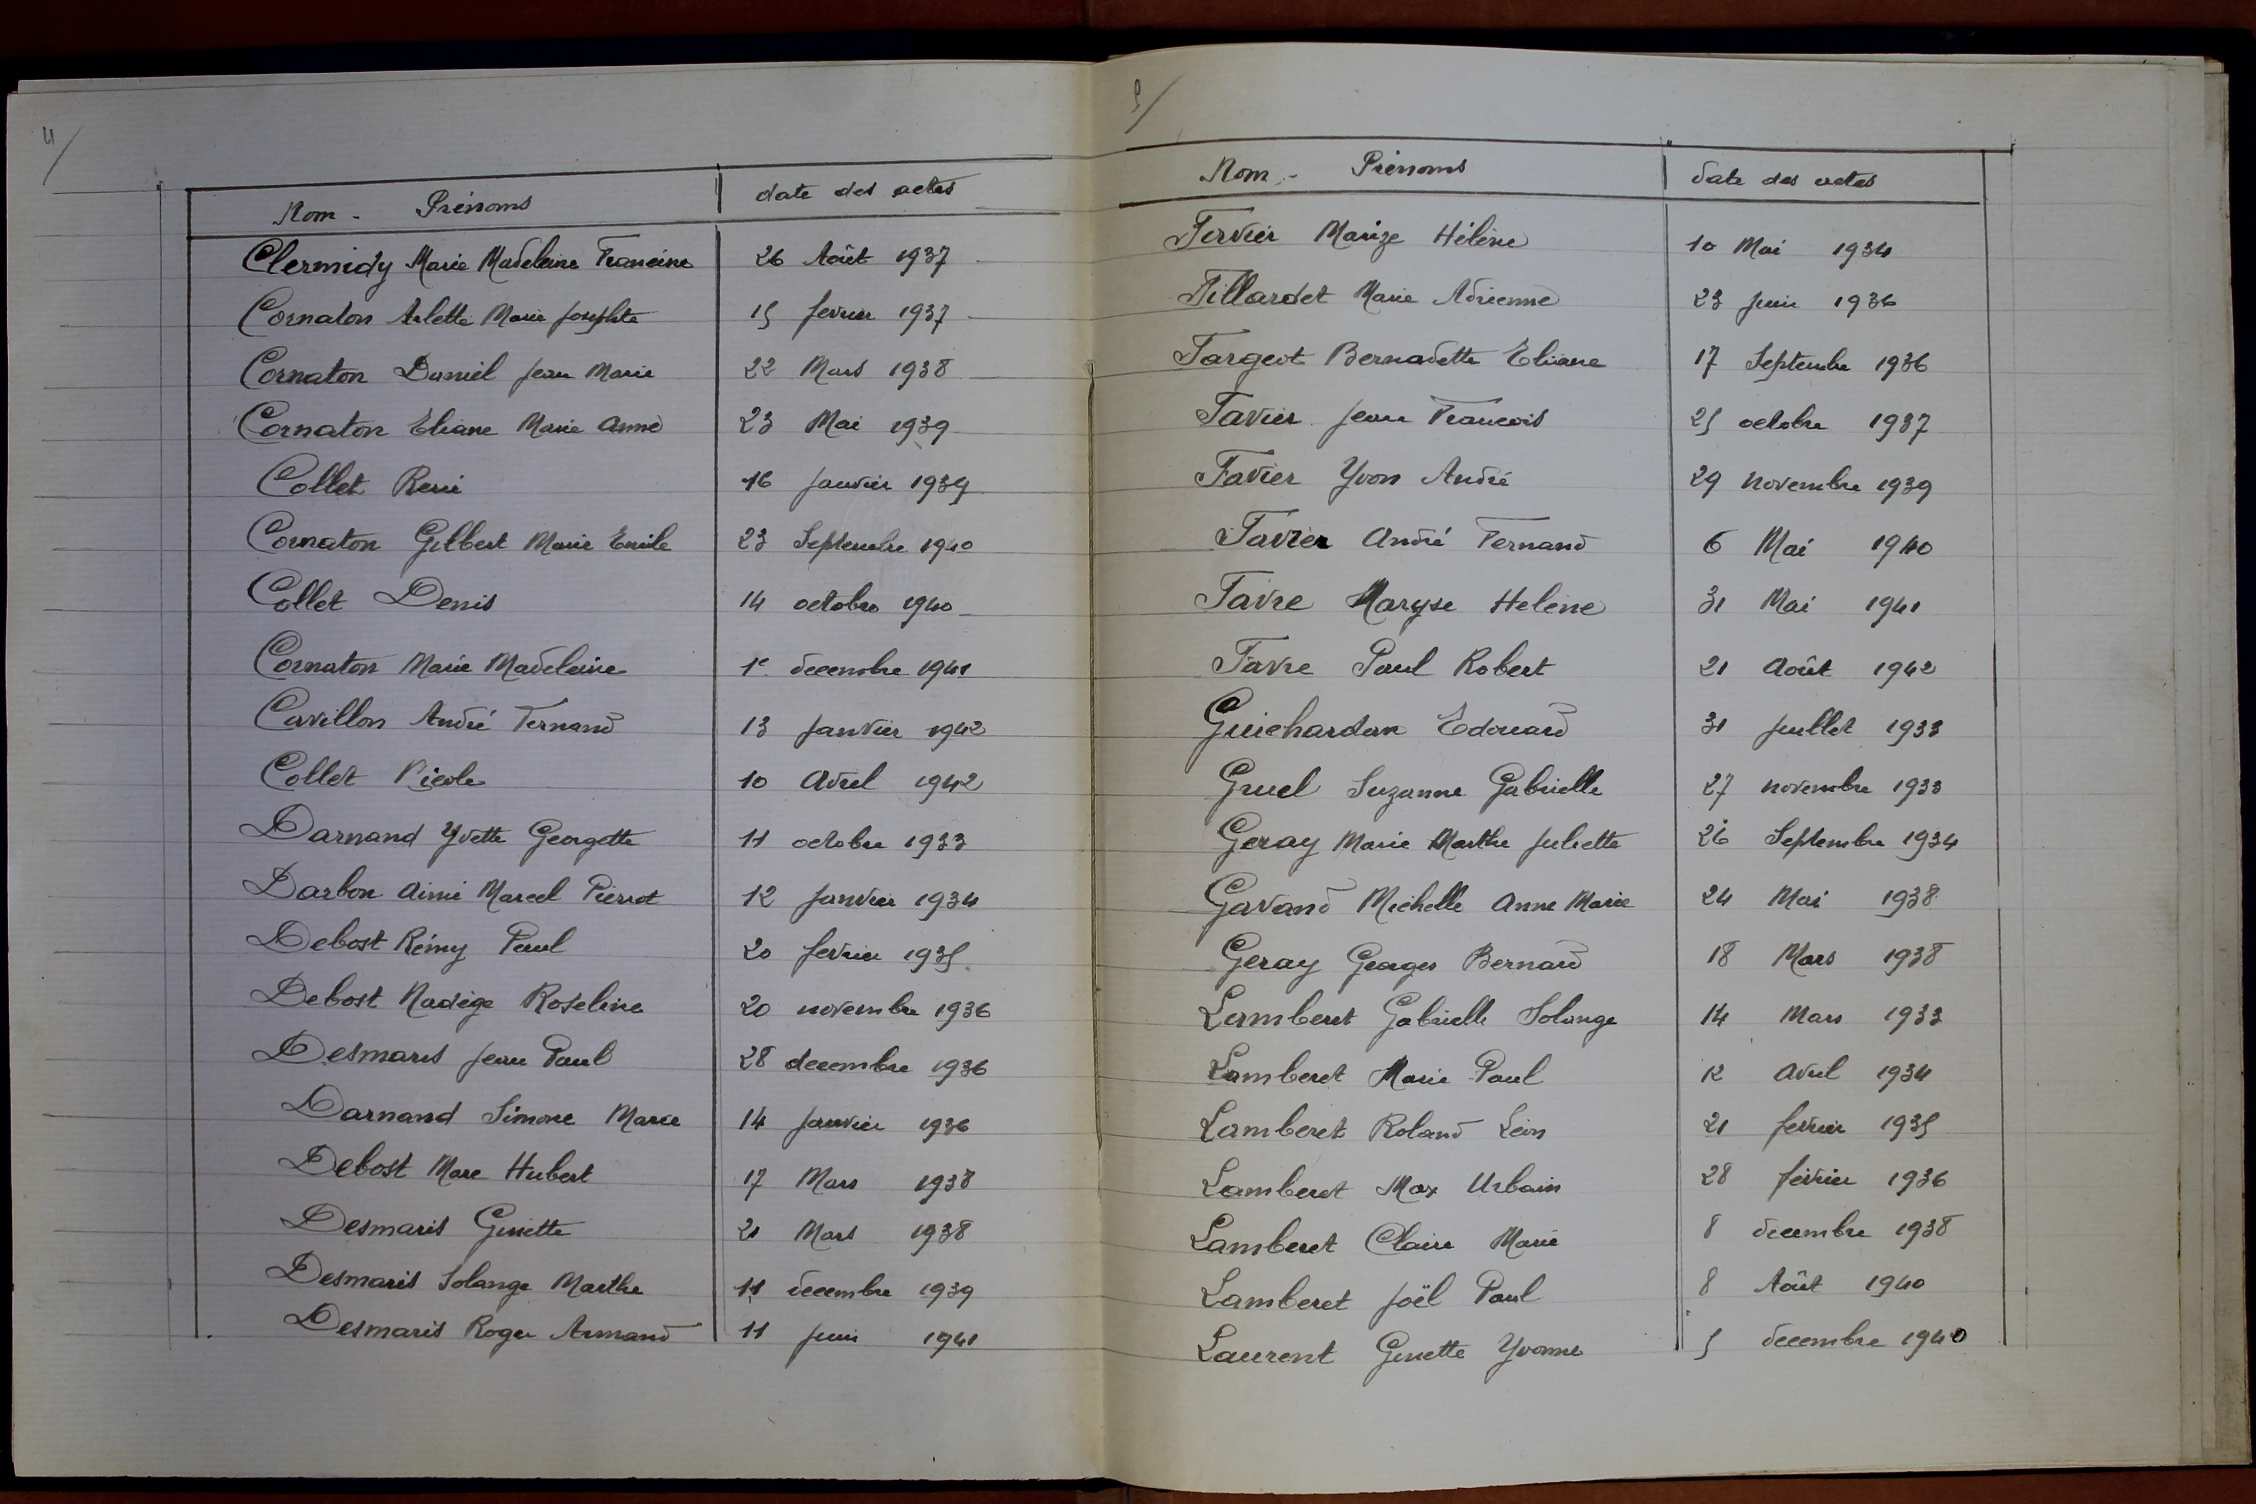 4/
Nom - Prénoms date des actes
Clermidy Marie Madeleine Francine 26 Août 1937
Cornaton Arlette Marie Josephte 15 fevrier 1937
Cornaton Daniel Jean Marie 22 Mars 1938
Cornaton Eliane Marie Anne 23 Mai 1939
Collet René 16 Janvier 1939
Cornaton Gilbert Marie Emile 23 Septembre 1940
Collet Denis 14 octobre 1940
Cornaton Marie Madeleine 1e decembre 1941
Cavillon André Fernand 13 Janvier 1942
Collet Nicole 10 Avril 1942
Darnand Yvette Georgette 11 octobre 1933
Darbon Aimé Marcel Pierrot 12 Janvier 1934
Debost Rémy Paul 20 fevrier 1935
Debost Nadège Roseline 20 novembre 1936
Desmaris Jean Paul 28 decembre 1936
Darnand Simone Marie 14 Janvier 1936
Debost Marc Hubert 17 Mars 1938
Desmaris Ginette 21 Mars 1938
Desmaris Solange Marthe 11 decembre 1939
Desmaris Roger Armand 11 Juin 1941
5/
Nom - Prénoms date des actes
Fervier Marize Hélène 10 Mai 1934
Fillardet Marie Adrienne 23 Juin 1936
Fargeot Bernadette Eliane 17 Septembre 1936
Favier Jean Francois 25 octobre 1937
Favier Yvon André 29 novembre 1939
Favier André Fernand 6 Mai 1940
Favre Maryse Helène 31 Mai 1941
Favre Paul Robert 21 Août 1942
Guichardan Edouard 31 Juillet 1933
Gruel Suzanne Gabrielle 27 novembre 1933
Geray Marie Marthe Juliette 26 Septembre 1934
Gavand Michelle Anne Marie 24 Mai 1938
Geray Georges Bernard 18 Mars 1938
Lamberet Gabrielle Solange 14 Mars 1933
Lamberet Marie Paul 12 Avril 1934
Lamberet Roland Léon 21 fevrier 1935
Lamberet Max Urbain 28 février 1936
Lamberet Claire Marie 8 decembre 1938
Lamberet Joël Paul 8 Août 1940
Laurent Ginette Yvonne 5 decembre 1940